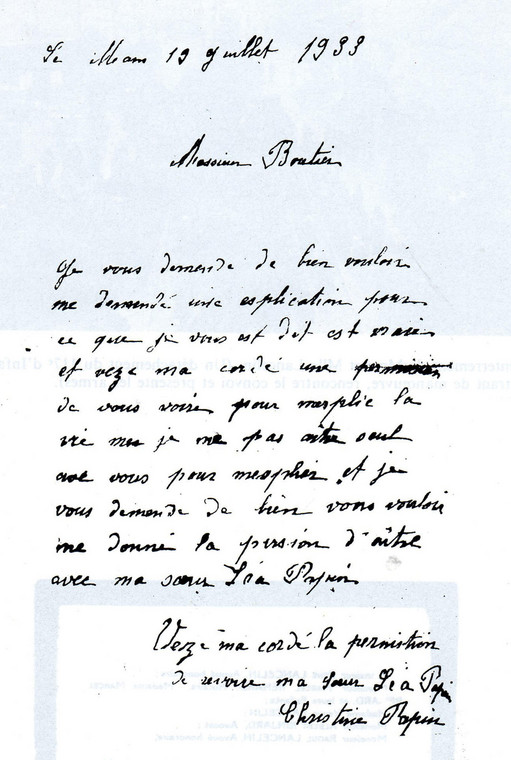 Le Mans 19 Juillet 1933
Messieur Boutier
Je vous demende de bien vouloir
me demendé une esplication pour
ce que je vous est dit est vraie
et veze ma cordé une
de vous voire pour mesplic la
vie mes je ne pas aitre seul
ave vous pour mesplier et je
vous demende de bien vous vouloir
me donné la persion d'aitre
avec ma sœur Léa Papin
Veze ma cordé la permistion
de revivre ma sœur Léa Papin
Christine Papin